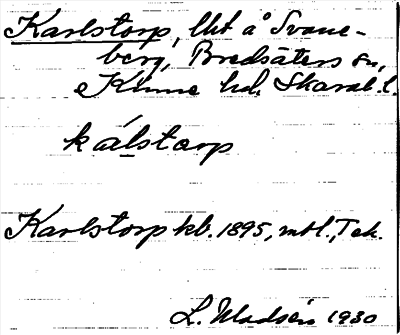 Karlstorp, lht å Svane-
berg, Bredsäters sn,
Kinne hd, Skarab. l.
kálstorp
Karlstorp kb. 1895, mtl., T. ek.
L. Madsén 1930